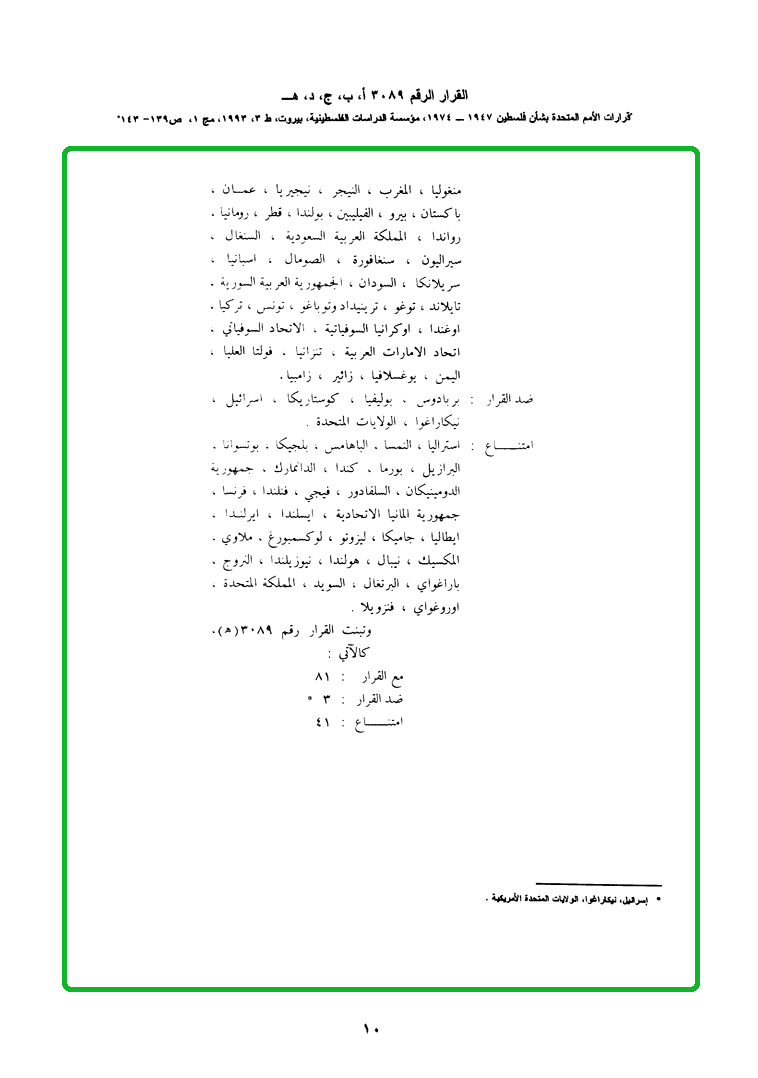 القرار الرقم ٣٠٨٩ أ، ب، ج، د، هـ
"قرارات الأمم المتحدة بشأن فلسطين ١٩٤٧ ــ ١٩٧٤، مؤسسة الدراسات الفلسطينية، بيروت، ط ٣، ١٩٩٣، مج ١، ص١٣٩- ١٤٣"
منغوليا ، المغرب ، النيجر ، نيجيريا ، عمــان ،
باكستان ، بيرو ، الفيليبين ، بولندا ، قطر ، رومانيا ،
رواندا ، المملكة العربية السعودية ، السنغال ،
سيراليون ، سنغافورة ، الصومال ، اسبانيا ،
سريلانكا ، السودان ، الجمهورية العربية السورية ،
تايلاند ، توغو ، ترينيداد وتوباغو ، تونس ، تركيا ،
اوغندا ، اوكرانيا السوفياتية ، الاتحاد السوفياتي ،
اتحاد الامارات العربية ، تنزانيا ، فولتا العليا ،
اليمن ، يوغسلافيا ، زائير ، زامبيا .
ضد القرار : بربادوس ، بوليفيا ، كوستاريكا ، اسرائيل ،
نيكاراغوا ، الولايات المتحدة .
امتنـــــاع : استراليا ، النمسا ، الباهامس ، بلجيكا ، بوتسوانا ،
البرازيل ، بورما ، كندا ، الدانمارك ، جمهورية
الدومينيكان ، السلفادور ، فيجي ، فنلندا ، فرنسا ،
جمهورية المانيا الاتحادية ، ايسلندا ، ايرلنـدا ،
ايطاليا ، جاميكا ، ليزوتو ، لوكسمبورغ ، ملاوي ،
المكسيك ، نيبال ، هولندا ، نيوزيلندا ، النروج ،
باراغواي ، البرتغال ، السويد ، المملكة المتحدة ،
اوروغواي ، فنزويلا .
وتبنت القرار رقم ٣٠٨٩ (ه)،
كالآتي :
مع القرار : ٨١
ضد القرار : ٣ *
امتنـــــاع : ٤١
* إسرائيل، نيكاراغوا، الولايات المتحدة الأمريكية .
١٠